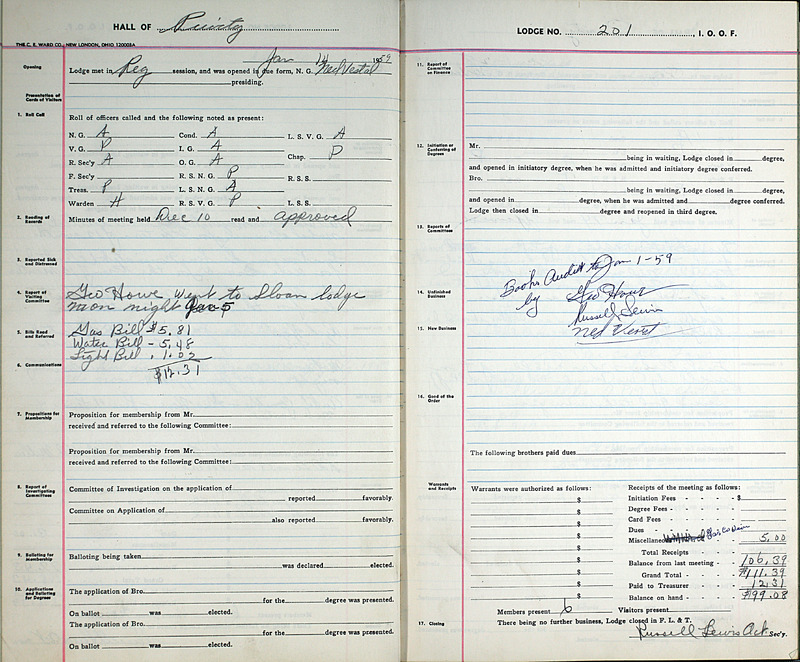 HALL OF
THE C. E. WARD CO., NEW LONDON, OHIO 120008A
Jan 14 1959
Opening
Lodge met in Reg session, and was opened in due form, N. G. Ned Vestal
presiding.
Presentation of Cards of Visitors
1. Roll Call
Roll of officers called and the following noted as present:
N. G. A Cond. A L. S. V. G. A
V. G. P I. G. A Chap. P
R. Sec'y A O. G. A
F. Sec'y R. S. N. G. P R. S. S.
Treas. P L. S. N. G. A
Warden A R. S. V. G. P L. S. S.
2. Reading of Records
Minutes of meeting held Dec 10 read and approved
3. Reported Sick and Distressed
4. Report of Visiting Committee
Geo Howe went to Sloan lodge
mon night Jan 5
5. Bills Read and Referred
Gas Bill $5.81
Water Bill - 5.48
Light Bill . 1.02
$12.31
6. Communications
7. Propositions for Membership
Proposition for membership from Mr.
received and referred to the following Committee:
Proposition for membership from Mr.
received and referred to the following Committee:
8. Report of Investigating Committees
Committee of Investigation on the application of
reported favorably.
Committee on Application of
also reported favorably.
9. Balloting for Membership
Balloting being taken
was declared elected.
10. Applications and Balloting for Degrees
The application of Bro.
for the degree was presented.
On ballot was elected.
The application of Bro.
for the degree was presented.
On ballot was elected.
LODGE NO. 201, I. O. O. F.
11. Report of Committee on Finance
12. Initiation or Conferring of Degrees
Mr.
being in waiting, Lodge closed in degree,
and opened in initiatory degree, when he was admitted and initiatory degree conferred.
Bro.
being in waiting, Lodge closed in degree,
and opened in degree, when he was admitted and degree conferred.
Lodge then closed in degree and reopened in third degree.
13. Reports of Committees
Books Audit to Jan 1-59
14. Unfinished Business
by Geo Howe
Russell Lewis
15. New Business
16. Good of the Order
The following brothers paid dues
Warrants and Receipts
Warrants were authorized as follows:
$
$
$
$
$
$
$
$
$
Receipts of the meeting as follows:
Initiation Fees - - - - - $
Degree Fees - - - - -
Card Fees - - - - -
Dues - - - - -
Miscellaneous 5.00
Total Receipts - - -
Balance from last meeting - - - 106.39
Grand Total - - - $111.39
Paid to Treasurer - - - 12.31
Balance on hand - - - $99.08
Members present 6 Visitors present
17. Closing
There being no further business, Lodge closed in F. L. & T.
Russell Lewis Act. Sec'y.